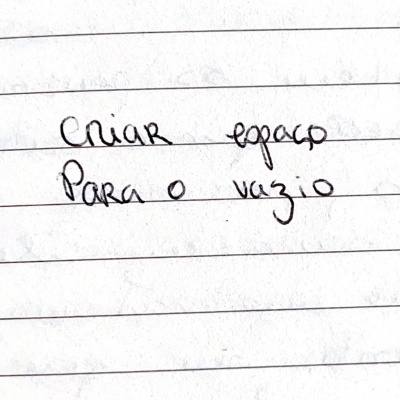 Criar espaço
Para o vazio